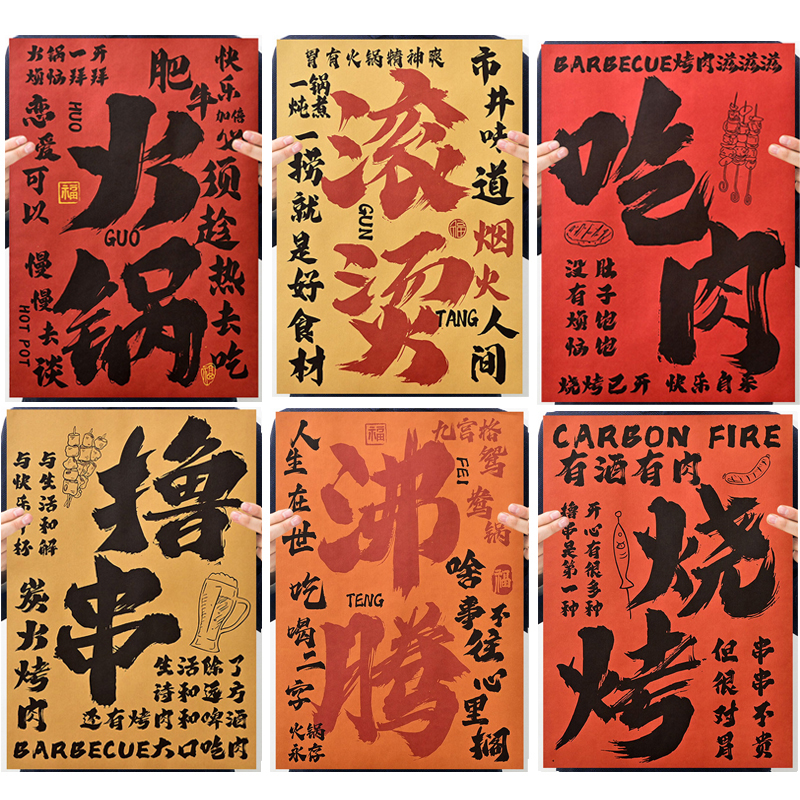 火锅一开
烦恼一拜拜
肥牛
快乐加倍
火锅
HUO
GUO
恋爱可以
慢慢去谈
HOT POT
必须趁热去吃
福
福
胃有火锅精神爽
一锅炖煮
一捞就是好食材
滚烫
GUN
TANG
市井味道
烟火人间
福
BARBECUE烤肉滋滋滋
吃肉
肚子饱饱
没有烦恼
烧烤已开 快乐自来
撸串
与生活和解
与快乐干杯
炭火烤肉
生活除了
诗和远方
还有烤肉和啤酒
BARBECUE大口吃肉
人生在世
吃喝二字
火锅永存
福
沸腾
FEI
TENG
九宫格
鸳鸯锅
福
啥事不往心里搁
CARBON FIRE
有酒有肉
开心有很多种
撸串是第一种
烧烤
串串不贵
但很对胃